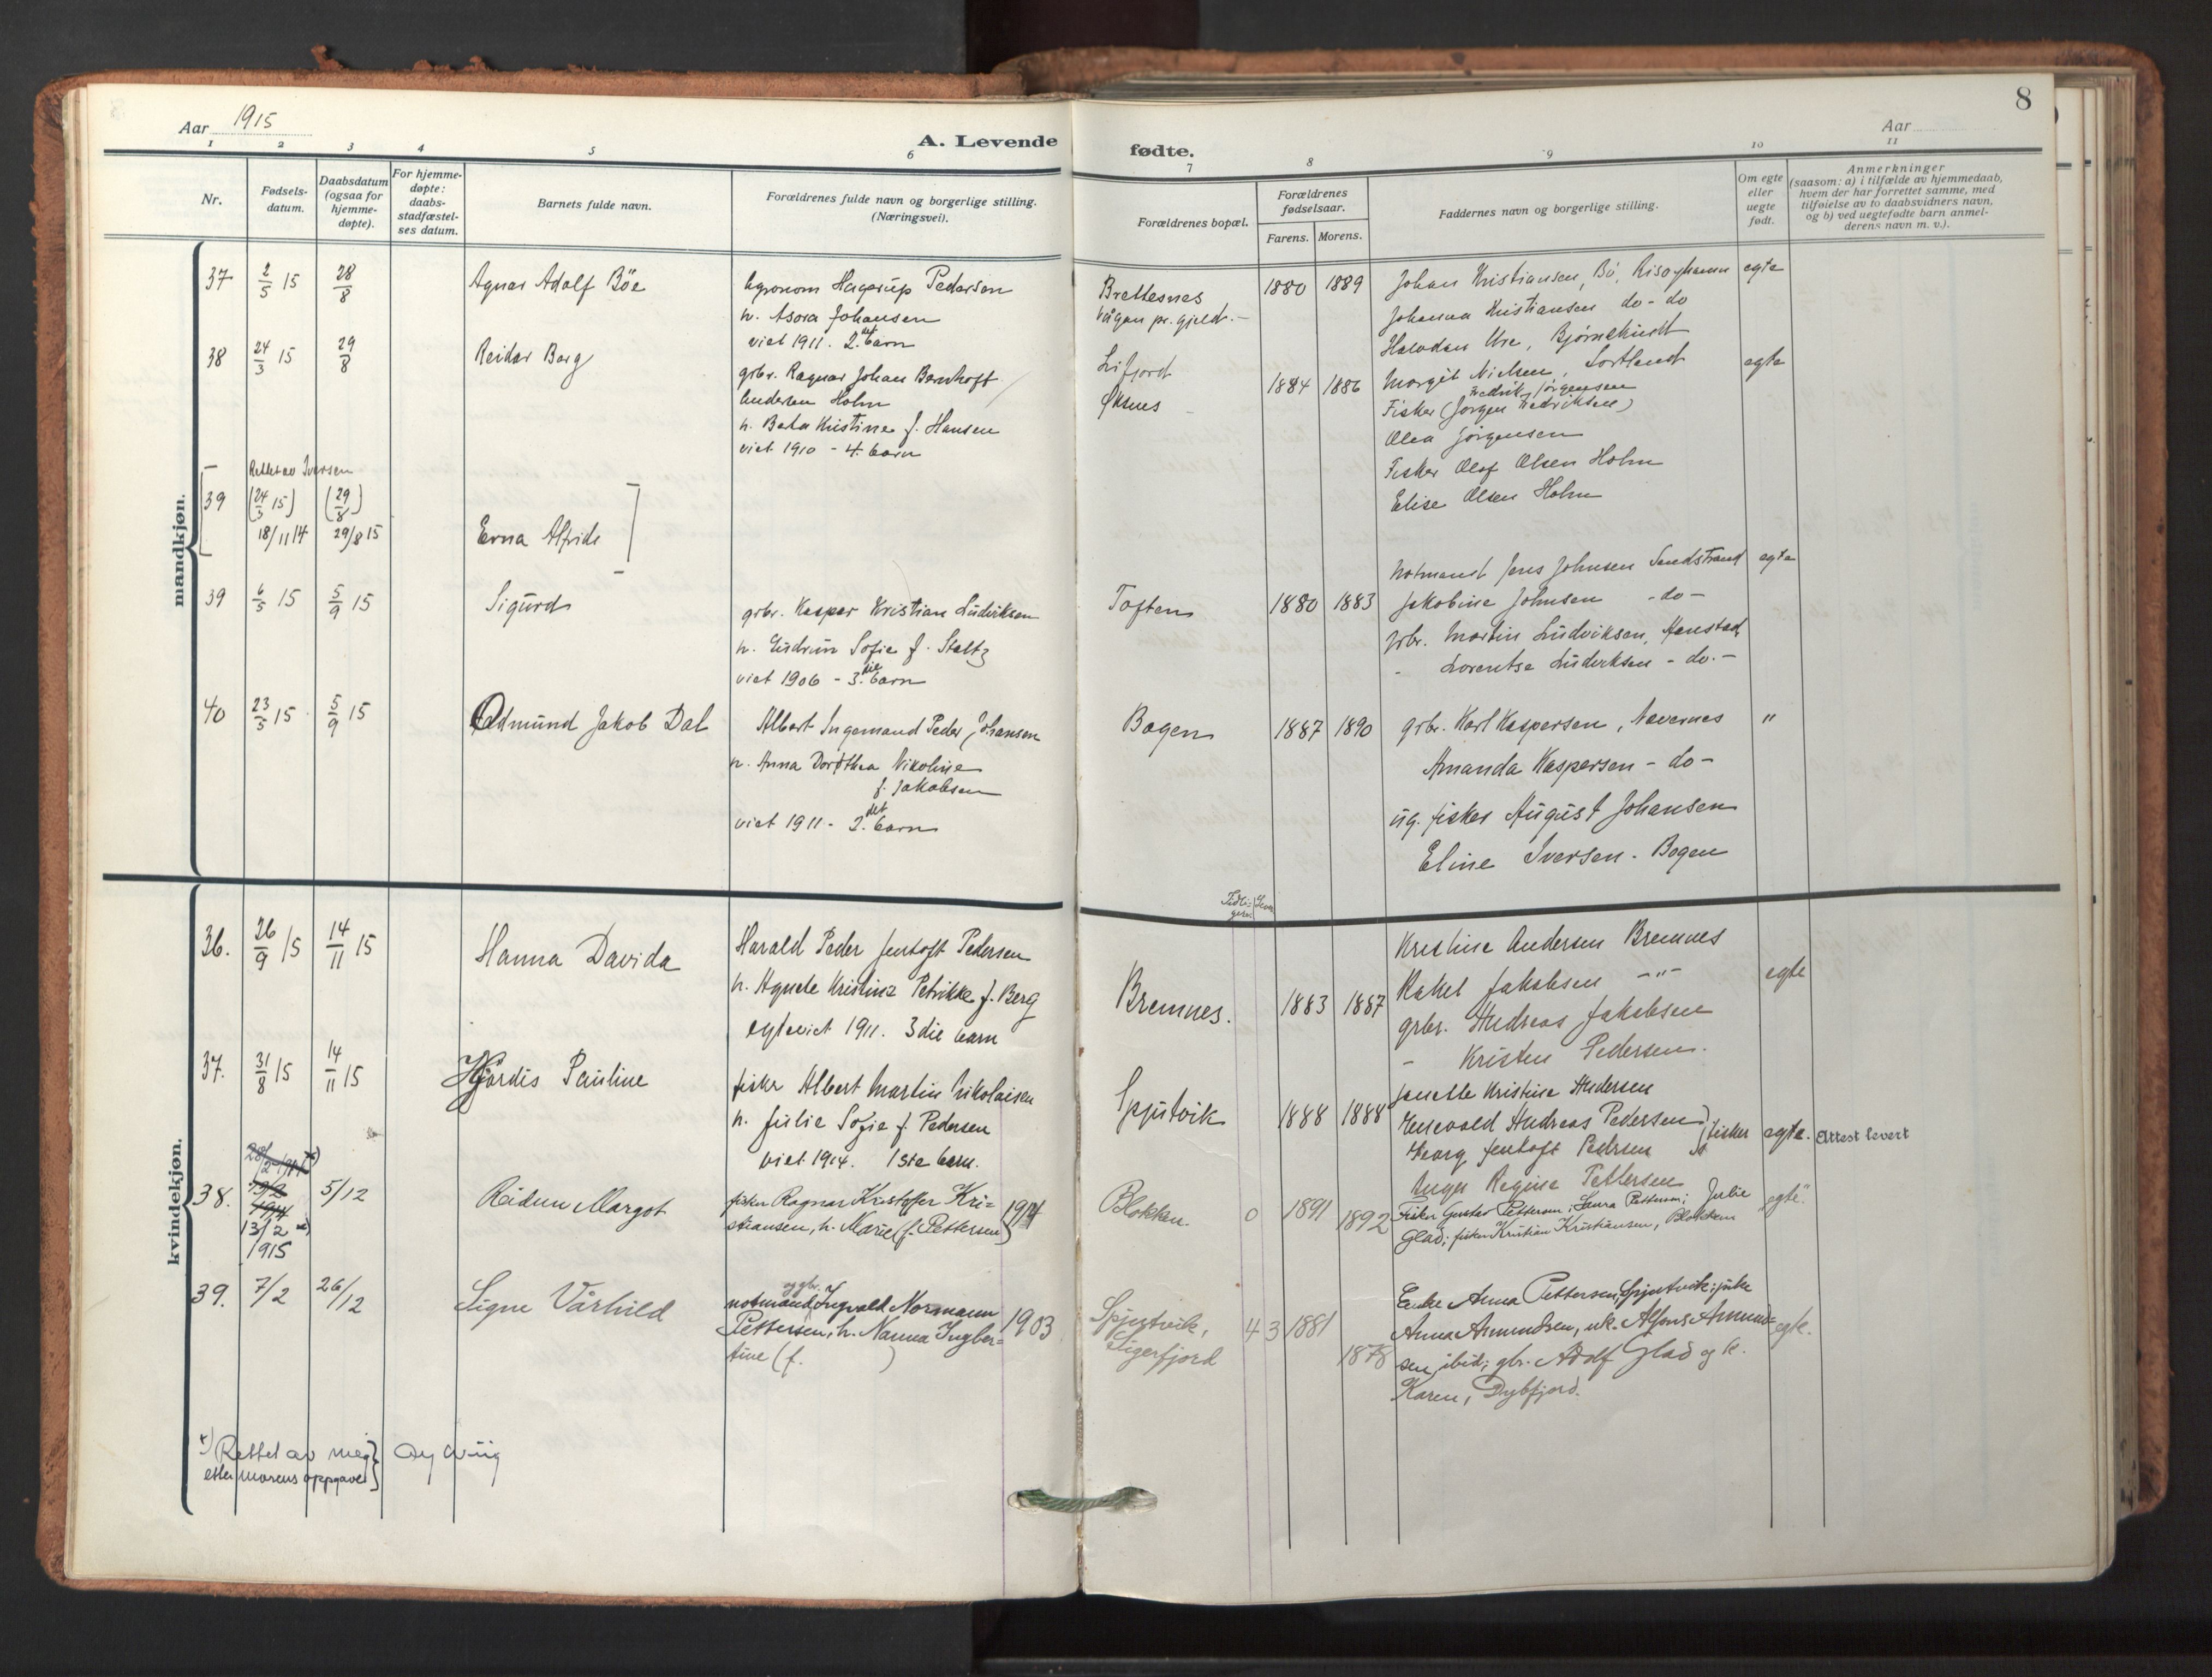 Aar 1915
A. Levende fødte.
8
Aar
1 2 3 4 5 6 7 8 9 10 11
Nr.
Fødsels-
datum.
Daabsdatum
(ogsaa for
hjemme-
døpte).
For hjemme-
døpte:
daabs-
stadfæstel-
ses datum.
Barnets fulde navn.
Forældrenes fulde navn og borgerlige stilling.
(Næringsvei).
Forældrenes bopæl.
Forældrenes
fødselsaar.
Farens. Morens.
Faddernes navn og borgerlige stilling.
Om egte
eller
uegte
født.
Anmerkninger
(saasom: a) i tilfælde av hjemmedaab,
hvem der har forrettet samme, med
tilføielse av to daabsvidners navn,
og b) ved uegtefødte barn anmel-
derens navn m. v.).
mandkjøn.
37 2/5 15 28/8 Agnar Adolf Böe
Agronom Hagerup Pedersen
h. Asora Johansen
viet 1911. 2.det barn
Brettesnes
Vågan pr. gjeld.-
1880 1889
Johan Kristiansen, Bö, Risøyhamn
Johanna Kristiansen do - do
Halvdan Ure, Bjørnskinn
Margit Nielsen, Sortland
egte
38 24/3 15 29/8 Reidar Berg
grbr. Ragnar Johan Bernhoft
Andersen Holm
h. Berta Kristine f. Hansen
viet 1910 - 4. barn
Lifjord
Øksnes
1884 1886
Fredrik Jørgensen
Fisker (Jørgen Fedriksen)
Olea Jörgensen
Fisker Olaf Olsen Holm
Elise Olsen Holm
egte
Rettet av Iversen
39 (24/3 15) (29/8)
18/11 14 29/8 15 Erna Alfride
39 6/5 15 5/9 15 Sigurd
grbr. Kasper Kristian Ludviksen
h. Gudrun Sofie f. Stoltz
viet 1906 - 3.die barn
Toften
1880 1883
Notmand Jens Johnsen Sandstrand
Jakobine Johnsen - do -
grbr. Martin Ludviksen, Hanstad,
- Lorentse Ludviksen - do. -
egte
40 23/5 15 5/9 15 Odmund Jakob Dal
Albert Ingemand Peder Johansen
h. Anna Dorothea Nikoline
f. Jakobsen
viet 1911 - 2.det barn
Bogen
1887 1890
grbr. Karl Kaspersen, Nevernes
Amanda Kaspersen - do -
ug. fisker August Johansen
Eline Iversen. Bogen
"
kvindekjøn.
36. 26/9 15 14/11 15 Hanna Davida
Harald Peder Jentoft Pedersen
h. Agnete Kristine Petrikke f. Berg
egteviet 1911. 3die barn
Bremnes.
1883 1887
Kristine Andersen Bremnes
Rakel Jakobsen -"-
grbr. Andreas Jakobsen
- Kristen Pedersen.
egte
37. 31/8 15 14/11 15 Hjördis Pauline
fisker Albert Martin Nikolaisen
h. Julie Sofie f. Pedersen
viet 1914. 1ste barn.
Spjutvik
1888 1888
Janette Kristine Andersen
Andreas Pedersen
Georg Jentoft Pedersen } fisker
Inga Regine Pettersen
egte.
Attest levert
28/2 1914 x)
13/2
1914
38. 13/2 x) 5/12 Reidun Margot
1915
fisker Ragnar Kristoffer Kri-
stiansen, h. Marie (f. Pettersen) 1914
Blokken. 0 1891 1892
Fisker Gustav Pettersen; Laura Pettersen; Julie
Glad; fisker Kristian Kristiansen, Blokken
"egte."
39. 7/2 26/12 Signe Vårhild
og gbr.
notmand, Ingvald Normann
Pettersen, h. Nanna Ingber- 1903
tine (f. )
Spjutvik,
Sigerfjord
4 3 1881 1878
Enke Anna Pettersen, Spjutvik; pike
Anna Amundsen, uk. Alfons Amund-
sen ibid; gbr. Adolf Glad og k.
Karen, Dybfjord.
egte.
x) Rettet av meg }
etter morens oppgave }